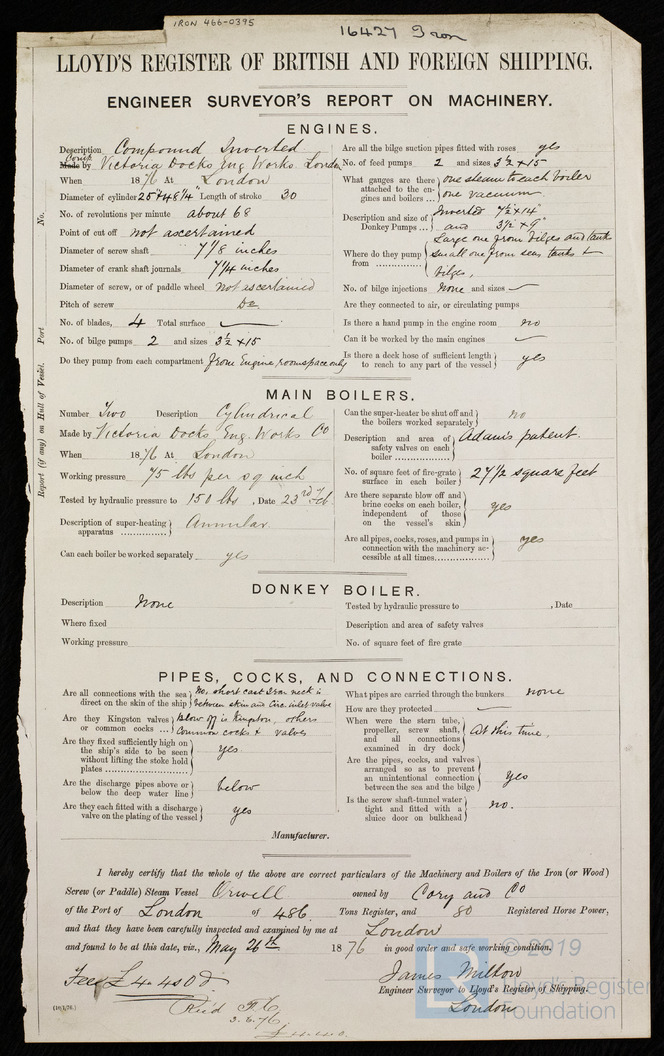 IRON 466-0395
16427 Iron
LLOYD'S REGISTER OF BRITISH AND FOREIGN SHIPPING.
ENGINEER SURVEYOR'S REPORT ON MACHINERY.
ENGINES.
Description Compound Inverted
Made by Victoria Docks Eng. Works London
When 1876 At London
Diameter of cylinder 25" & 48¼" Length of stroke 30
No. of revolutions per minute about 68
Point of cut off not ascertained
Diameter of screw shaft 7⅛ inches
Diameter of crank shaft journals 7¼ inches
Diameter of screw, or of paddle wheel not ascertained
Pitch of screw Do
No. of blades, 4 Total surface
No. of bilge pumps 2 and sizes 3½ × 15
Do they pump from each compartment from Engine room space only
Are all the bilge suction pipes fitted with roses yes
No. of feed pumps 2 and sizes 3½ × 15
What gauges are there attached to the engines and boilers ... one steam to each boiler
one vacuum
Description and size of Donkey Pumps ... Inverted 7½ × 14"
and 3½ × 9"
Where do they pump from ............ Large one from bilges and tanks
small one from sea, tanks &
bilges,
No. of bilge injections None and sizes
Are they connected to air, or circulating pumps
Is there a hand pump in the engine room no
Can it be worked by the main engines
Is there a deck hose of sufficient length to reach to any part of the vessel yes
No.
Port
Report (if any) on Hull of Vessel.
MAIN BOILERS.
Number Two Description Cylindrical
Made by Victoria Docks Eng. Works Co
When 1876 At London
Working pressure 75 lbs per sq inch
Tested by hydraulic pressure to 150 lbs, Date 23rd Feb.
Description of super-heating apparatus .............. Annular
Can each boiler be worked separately yes
Can the super-heater be shut off and the boilers worked separately no
Description and area of safety valves on each boiler ............... Adam's patent.
No. of square feet of fire-grate surface in each boiler 27½ square feet
Are there separate blow off and brine cocks on each boiler, independent of those on the vessel's skin yes
Are all pipes, cocks, roses, and pumps in connection with the machinery accessible at all times............... yes
DONKEY BOILER.
Description None
Where fixed
Working pressure
Tested by hydraulic pressure to , Date
Description and area of safety valves
No. of square feet of fire grate
PIPES, COCKS, AND CONNECTIONS.
Are all connections with the sea direct on the skin of the ship No, short cast Iron neck is
between skin and Circ. inlet valve
Are they Kingston valves or common cocks ... Blow off is Kingston, others
Common cocks & valves
Are they fixed sufficiently high on the ship's side to be seen without lifting the stoke hold plates ................. yes
Are the discharge pipes above or below the deep water line below
Are they each fitted with a discharge valve on the plating of the vessel yes
What pipes are carried through the bunkers none
How are they protected
When were the stern tube, propeller, screw shaft, and all connections examined in dry dock At this time.
Are the pipes, cocks, and valves arranged so as to prevent an unintentional connection between the sea and the bilge yes
Is the screw shaft-tunnel water tight and fitted with a sluice door on bulkhead no.
Manufacturer.
I hereby certify that the whole of the above are correct particulars of the Machinery and Boilers of the Iron (or Wood)
Screw (or Paddle) Steam Vessel Orwell owned by Cory and Co
of the Port of London of 486 Tons Register, and 80 Registered Horse Power,
and that they have been carefully inspected and examined by me at London
and found to be at this date, viz., May 26th 1876 in good order and safe working condition.
Fee £4.4s 0d.
James Milton
Engineer Surveyor to Lloyd's Register of Shipping.
London
Rec'd
3.6.76
£4.4.0.
© 2019
Lloyd's Register
Foundation